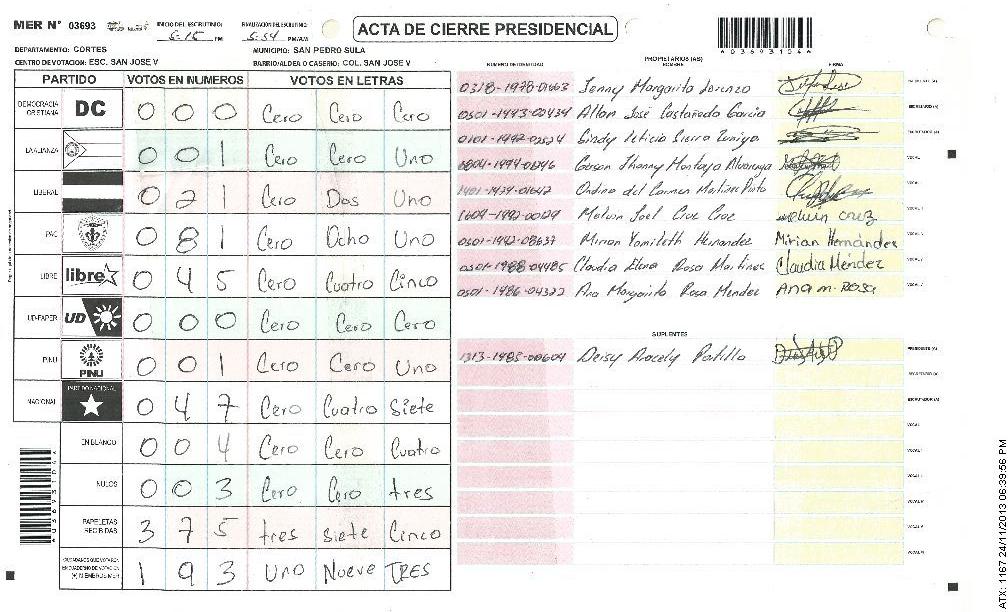 MER N° 03693 INICIO DEL ESCRUTINIO: 5:15 PM FINALIZACION DEL ESCRUTINIO: 5:54 PM/AM ACTA DE CIERRE PRESIDENCIAL
DEPARTAMENTO: CORTES MUNICIPIO: SAN PEDRO SULA
CENTRO DE VOTACION: ESC. SAN JOSE V BARRIO/ALDEA O CASERIO: COL. SAN JOSE V
PARTIDO VOTOS EN NUMEROS VOTOS EN LETRAS
DEMOCRACIA CRISTIANA DC 0 0 0 Cero Cero Cero
LA ALIANZA 0 0 1 Cero Cero Uno
LIBERAL 0 2 1 Cero Dos Uno
PAC 0 8 1 Cero Ocho Uno
LIBRE libre 0 4 5 Cero Cuatro Cinco
UD-FAPER UD 0 0 0 Cero Cero Cero
PINU PINU 0 0 1 Cero Cero Uno
NACIONAL PARTIDO NACIONAL 0 4 7 Cero Cuatro Siete
EN BLANCO 0 0 4 Cero Cero Cuatro
NULOS 0 0 3 Cero Cero tres
PAPELETAS RECIBIDAS 3 7 5 tres siete Cinco
CIUDADANOS QUE VOTARON EN CUADERNO DE VOTACION (+) MIEMBROS MER 1 9 3 Uno Nueve TRES
A03693104
PROPIETARIOS (AS)
NUMERO DE IDENTIDAD NOMBRE FIRMA
0318-1978-01663 Jenny Margarita Lorenzo
0501-1993-00434 Allan José Castañeda Garcia
0101-1992-02524 Sindy Leticia Sierra Zuniga
Gerson Jhanny Montoya
Ondina del Carmen Martinez Pinto
1604-1992-00129 Melvin Joel Cruz Cruz melvin cruz
0501-1992-08637 Mirian Yamileth Hernandez Mirian Hernández
0501-1988-04485 Claudia Elena Rosa Martinez Claudia Méndez
0501-1986-04322 Ana Margarita Rosa Mendez Ana m. Rosa
SUPLENTES
1313-1985-00604 Deisy Aracely Padilla
A03693104
ATX: 1167 24/11/2013 06:39:56 PM